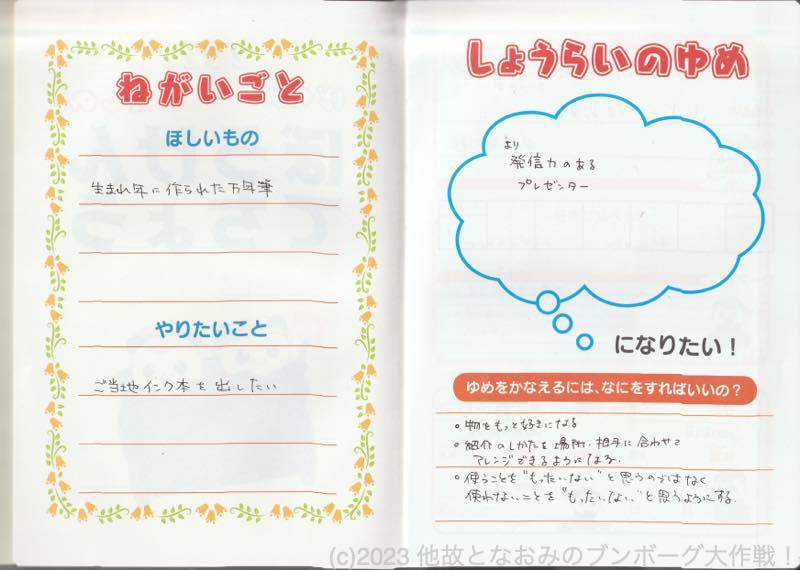 ねがいごと
ほしいもの
生まれ年に作られた万年筆
やりたいこと
ご当地インク本を出したい
しょうらいのゆめ
より
発信力のある
プレゼンター
になりたい！
ゆめをかなえるには、なにをすればいいの？
○ 物をもっと好きになる
○ 紹介のしかたを場所、相手に合わせて
アレンジできるようになる。
○ 使うことを"もったいない"と思うのではなく
使わないことを"もったいない"と思うようにする。
(c)2023 他故となおみのブンボーグ大作戦！